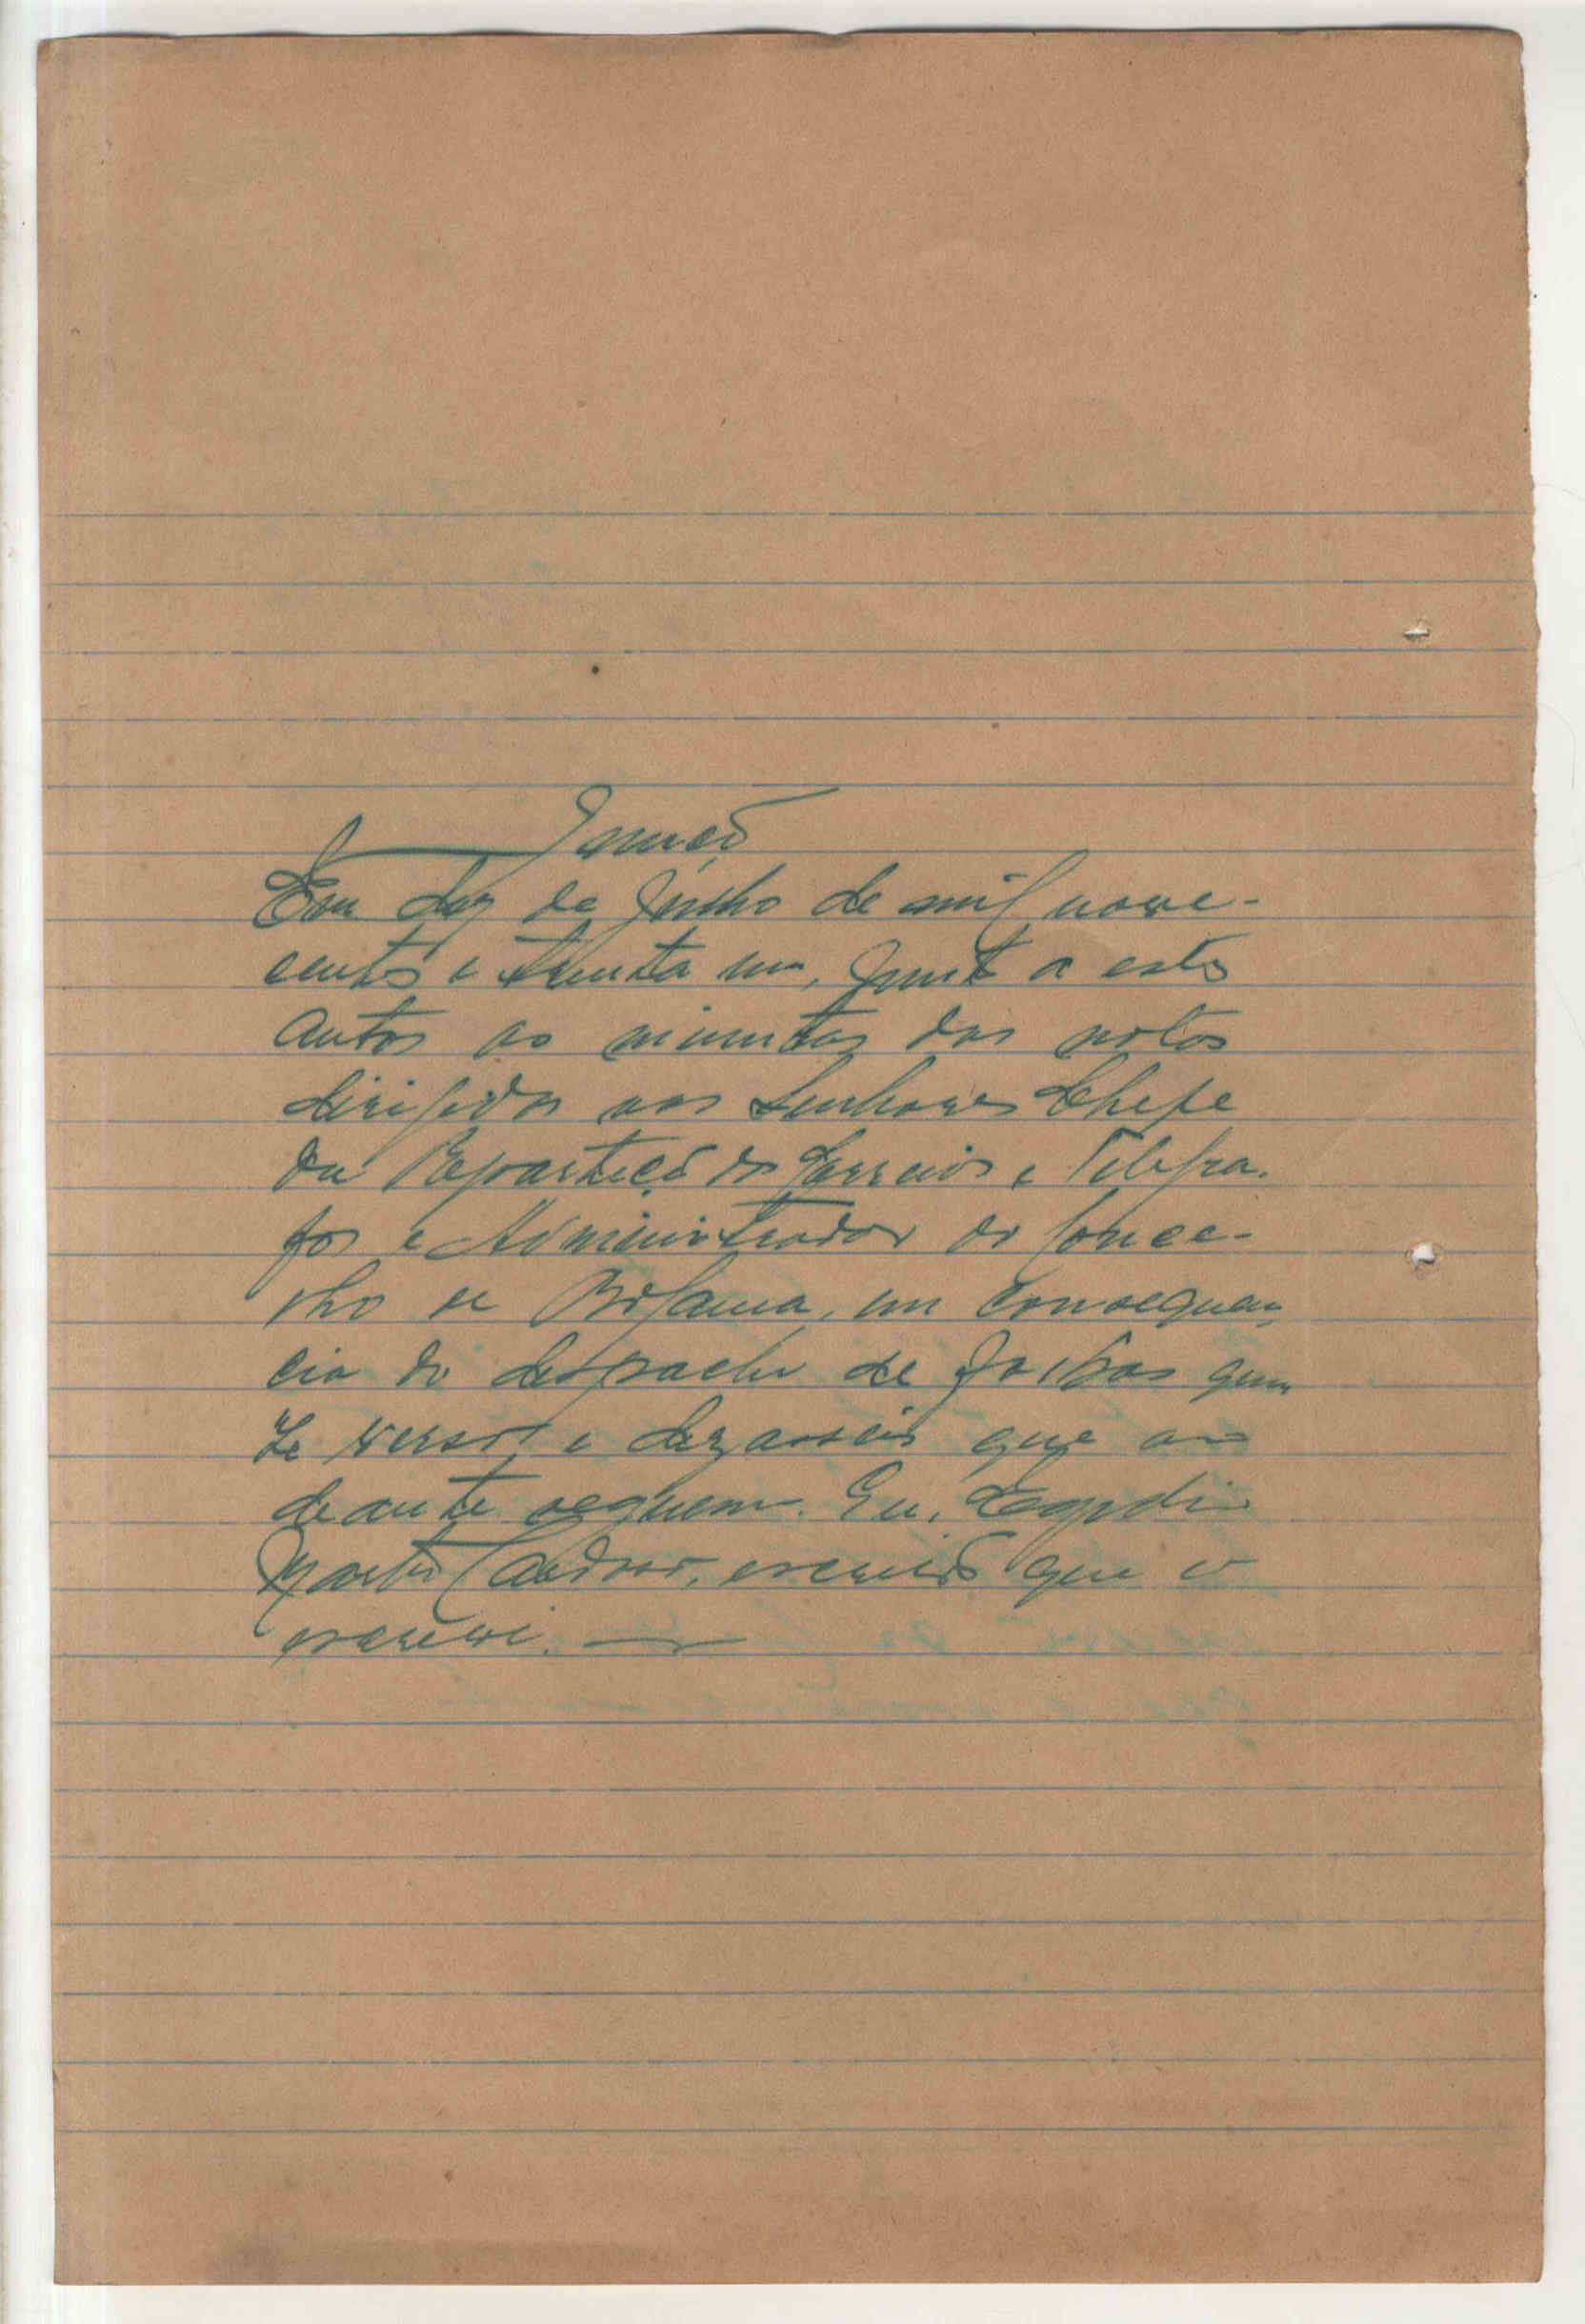 Junção
Em dez de Junho de mil nove-
centos e trinta um, junto a estes
autos as minutas das notas
dirigidas aos Senhores Chefe
da Repartição dos Correios e Telegra-
fos e Administrador do Conce-
lho de Bolama, em consequen-
cia do despacho de folhas quin-
ze verso e dezasseis que ao
deante seguem. Eu,
Martins Cardoso, escrivão que o
escrevi.